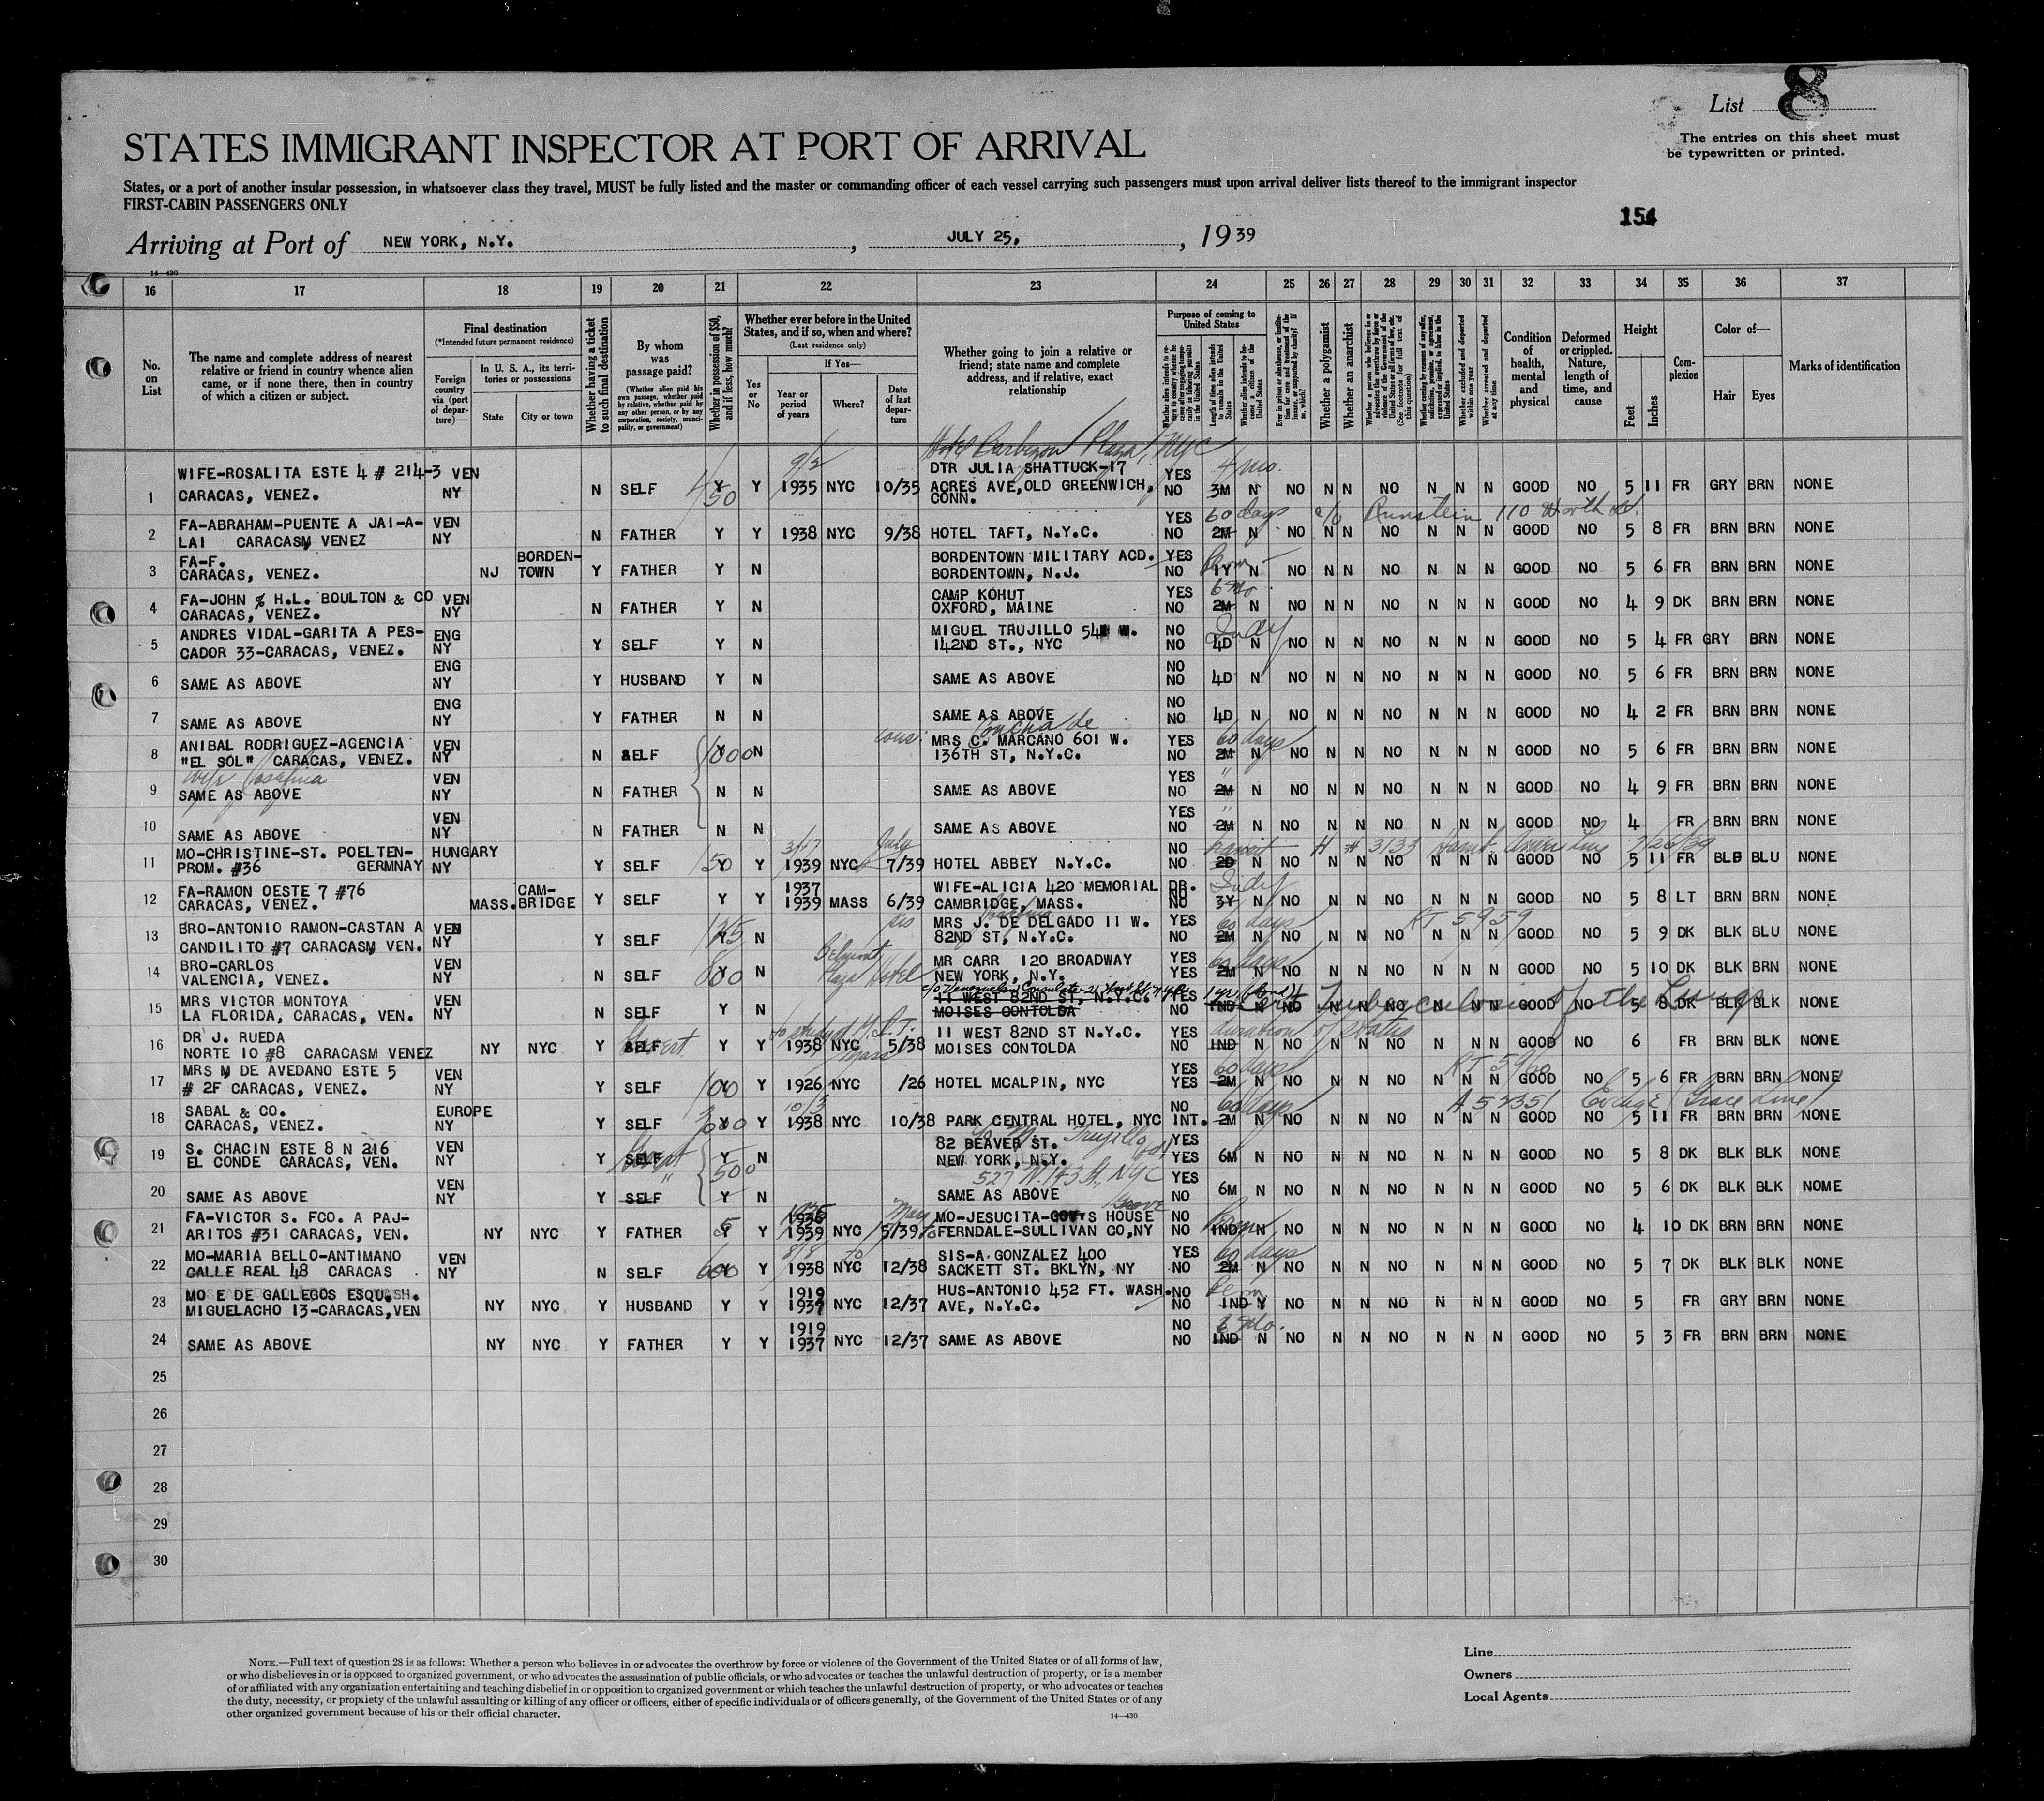 List 8
The entries on this sheet must
be typewritten or printed.
STATES IMMIGRANT INSPECTOR AT PORT OF ARRIVAL
States, or a port of another insular possession, in whatsoever class they travel, MUST be fully listed and the master or commanding officer of each vessel carrying such passengers must upon arrival deliver lists thereof to the immigrant inspector
FIRST-CABIN PASSENGERS ONLY
154
Arriving at Port of NEW YORK, N.Y. , JULY 25, , 1939
14—430
16 17 18 19 20 21 22 23 24 25 26 27 28 29 30 31 32 33 34 35 36 37
No. on List
The name and complete address of nearest relative or friend in country whence alien came, or if none there, then in country of which a citizen or subject.
Final destination
(*Intended future permanent residence)
Foreign country via (port of departure)—
In U. S. A., its territories or possessions
State City or town
Whether having a ticket to such final destination
By whom was passage paid?
(Whether alien paid his own passage, whether paid by relative, whether paid by any other person, or by any corporation, society, municipality, or government)
Whether in possession of $50, and if less, how much?
Whether ever before in the United States, and if so, when and where?
(Last residence only)
Yes or No
If Yes—
Year or period of years Where? Date of last departure
Whether going to join a relative or friend; state name and complete address, and if relative, exact relationship
Purpose of coming to United States
Length of time alien intends to remain in the United States
Whether alien intends to become a citizen of the United States
Whether a polygamist
Whether an anarchist
Whether excluded and deported within one year
Whether arrested and deported at any time
Condition of health, mental and physical
Deformed or crippled. Nature, length of time, and cause
Height
Feet Inches
Complexion
Color of—
Hair Eyes
Marks of identification
Hotel Barbizon Plaza, NYC
1 WIFE-ROSALITA ESTE 4 # 214-3 VEN DTR JULIA SHATTUCK-17 YES 4 mos.
CARACAS, VENEZ. NY N SELF Y 50 Y 1935 NYC 10/35 ACRES AVE,OLD GREENWICH, CONN. NO 3M N NO N N NO N N N GOOD NO 5 11 FR GRY BRN NONE
2 FA-ABRAHAM-PUENTE A JAI-A- VEN YES 60 days c/o 110 Worth St.
LAI CARACASM VENEZ NY N FATHER Y Y 1938 NYC 9/38 HOTEL TAFT, N.Y.C. NO 2M N NO N N NO N N N GOOD NO 5 8 FR BRN BRN NONE
3 FA-F. BORDEN- BORDENTOWN MILITARY ACD. YES
CARACAS, VENEZ. NJ TOWN Y FATHER Y N BORDENTOWN, N.J. NO 1Y N NO N N NO N N N GOOD NO 5 6 FR BRN BRN NONE
4 FA-JOHN % H.L. BOULTON & CO VEN CAMP KOHUT YES 6 Mo.
CARACAS, VENEZ. NY N FATHER Y N OXFORD, MAINE NO 2M N NO N N NO N N N GOOD NO 4 9 DK BRN BRN NONE
5 ANDRES VIDAL-GARITA A PES- ENG MIGUEL TRUJILLO 541 W. NO
CADOR 33-CARACAS, VENEZ. NY Y SELF Y N 142ND ST., NYC NO 4D N NO N N NO N N N GOOD NO 5 4 FR GRY BRN NONE
6 ENG NO
SAME AS ABOVE NY Y HUSBAND Y N SAME AS ABOVE NO 4D N NO N N NO N N N GOOD NO 5 6 FR BRN BRN NONE
7 ENG NO
SAME AS ABOVE NY Y FATHER N N SAME AS ABOVE NO 4D N NO N N NO N N N GOOD NO 4 2 FR BRN BRN NONE
8 ANIBAL RODRIGUEZ-AGENCIA VEN cous. Concha de MRS C. MARCANO 601 W. YES 60 days
"EL SOL" CARACAS, VENEZ. NY N SELF Y 1000 N 136TH ST, N.Y.C. NO 2M N NO N N NO N N N GOOD NO 5 6 FR BRN BRN NONE
9 wife Josefina VEN YES "
SAME AS ABOVE NY N FATHER N N SAME AS ABOVE NO 2M N NO N N NO N N N GOOD NO 4 9 FR BRN BRN NONE
10 VEN YES "
SAME AS ABOVE NY N FATHER N N SAME AS ABOVE NO 2M N NO N N NO N N N GOOD NO 4 FR BRN BRN NONE
11 MO-CHRISTINE-ST. POELTEN- HUNGARY July NO transit 7/26/39
PROM. #36 GERMNAY NY Y SELF Y 150 Y 1939 NYC 7/39 HOTEL ABBEY N.Y.C. NO 2D N NO N N NO N N N GOOD NO 5 11 FR BLD BLU NONE
12 FA-RAMON OESTE 7 #76 CAM- 1937 WIFE-ALICIA 420 MEMORIAL DR. NO
CARACAS, VENEZ. MASS. BRIDGE Y SELF Y Y 1939 MASS 6/39 CAMBRIDGE, MASS. NO 3Y N NO N N NO N N N GOOD NO 5 8 LT BRN BRN NONE
13 BRO-ANTONIO RAMON-CASTAN A VEN MRS J. DE DELGADO 11 W. YES 60 days RT 5959
CANDILITO #7 CARACASM, VEN. NY Y SELF Y 125 N 82ND ST, N.Y.C. NO 2M N NO N N NO N N N GOOD NO 5 9 DK BLK BLU NONE
14 BRO-CARLOS VEN Belmont Plaza Hotel MR CARR 120 BROADWAY YES 60 days
VALENCIA, VENEZ. NY N SELF Y 800 N NEW YORK, N.Y. YES 2M N NO N N NO N N N GOOD NO 5 10 DK BLK BRN NONE
c/o Venezuelan Consulate
15 MRS VICTOR MONTOYA VEN 11 WEST 82ND ST, N.Y.C. YES 1 yr. (bond) Cert. Tuberculosis of the Lungs
LA FLORIDA, CARACAS, VEN. NY N SELF Y N MOISES CONTOLDA NO IND N NO N N NO N N N GOOD NO 5 8 DK BLK BLK NONE
16 DR J. RUEDA to study at M.I.T. Mass 11 WEST 82ND ST N.Y.C. YES duration of status
NORTE 10 #8 CARACASM VENEZ NY NYC Y SELF Y Y 1938 NYC 5/38 MOISES CONTOLDA NO IND N NO N N NO N N N GOOD NO 6 FR BRN BLK NONE
17 MRS M DE AVEDANO ESTE 5 VEN YES 60 days RT 5960
# 2F CARACAS, VENEZ. NY Y SELF Y 100 Y 1926 NYC /26 HOTEL MCALPIN, NYC YES 2M N NO N N NO N N N GOOD NO 5 6 FR BRN BRN NONE
18 SABAL & CO. EUROPE 10/3 NO 60 days A 52351 (Grace Line)
CARACAS, VENEZ. NY Y SELF Y Y 1938 NYC 10/38 PARK CENTRAL HOTEL, NYC INT. 2M N NO N N NO N N N GOOD NO 5 11 FR BRN BRN NONE
19 S. CHACIN ESTE 8 N 216 VEN 82 BEAVER ST. Trujillo YES
EL CONDE CARACAS, VEN. NY Y SELF Y 500 N NEW YORK, N.Y. YES 6M N NO N N NO N N N GOOD NO 5 8 DK BLK BLK NONE
20 VEN " 527 W. 143 St., NYC YES
SAME AS ABOVE NY Y SELF Y N SAME AS ABOVE NO 6M N NO N N NO N N N GOOD NO 5 6 DK BLK BLK NOME
21 FA-VICTOR S. FCO. A PAJ- 1936 MO-JESUCITA-GOV'S HOUSE Grove NO Perm
ARITOS #31 CARACAS, VEN. NY NYC Y FATHER Y Y 1939 NYC 5/39 FERNDALE-SULLIVAN CO,NY NO IND N NO N N NO N N N GOOD NO 4 10 DK BRN BRN NONE
22 MO-MARIA BELLO-ANTIMANO VEN 8/8 to SIS-A. GONZALEZ 400 YES 60 days
CALLE REAL 48 CARACAS NY N SELF Y 600 Y 1938 NYC 12/38 SACKETT ST. BKLYN, NY NO 2M N NO N N NO N N N GOOD NO 5 7 DK BLK BLK NONE
23 MO E DE GALLEGOS ESQU.SH. 1919 HUS-ANTONIO 452 FT. WASH. NO Perm
MIGUELACHO 13-CARACAS,VEN NY NYC Y HUSBAND Y Y 1937 NYC 12/37 AVE, N.Y.C. NO IND Y NO N N NO N N N GOOD NO 5 FR GRY BRN NONE
24 1919 NO 6 Mo.
SAME AS ABOVE NY NYC Y FATHER Y Y 1937 NYC 12/37 SAME AS ABOVE NO IND N NO N N NO N N N GOOD NO 5 3 FR BRN BRN NONE
25
26
27
28
29
30
NOTE.—Full text of question 28 is as follows: Whether a person who believes in or advocates the overthrow by force or violence of the Government of the United States or of all forms of law,
or who disbelieves in or is opposed to organized government, or who advocates the assassination of public officials, or who advocates or teaches the unlawful destruction of property, or is a member
of or affiliated with any organization entertaining and teaching disbelief in or opposition to organized government or which teaches the unlawful destruction of property, or who advocates or teaches
the duty, necessity, or propriety of the unlawful assaulting or killing of any officer or officers, either of specific individuals or of officers generally, of the Government of the United States or of any
other organized government because of his or their official character.
14—430
Line
Owners
Local Agents